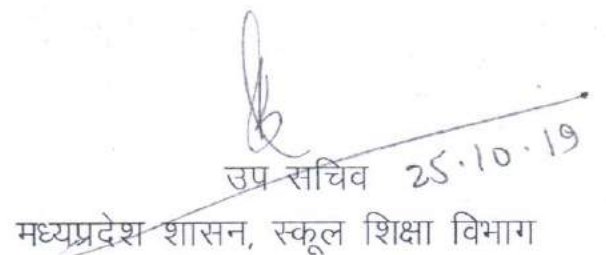 उप सचिव 25.10.19
मध्यप्रदेश शासन, स्कूल शिक्षा विभाग